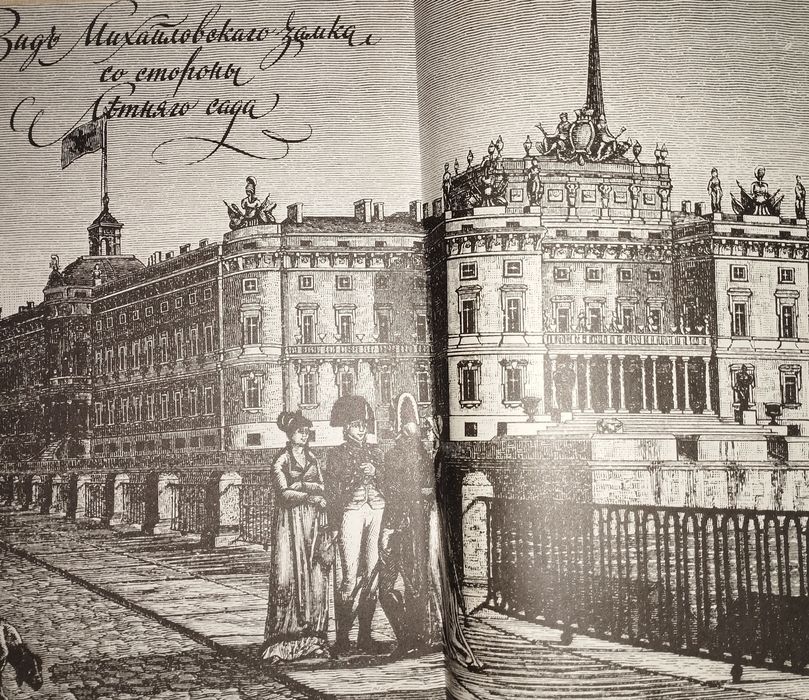 Видъ Михайловскаго замка
со стороны
Лѣтняго сада